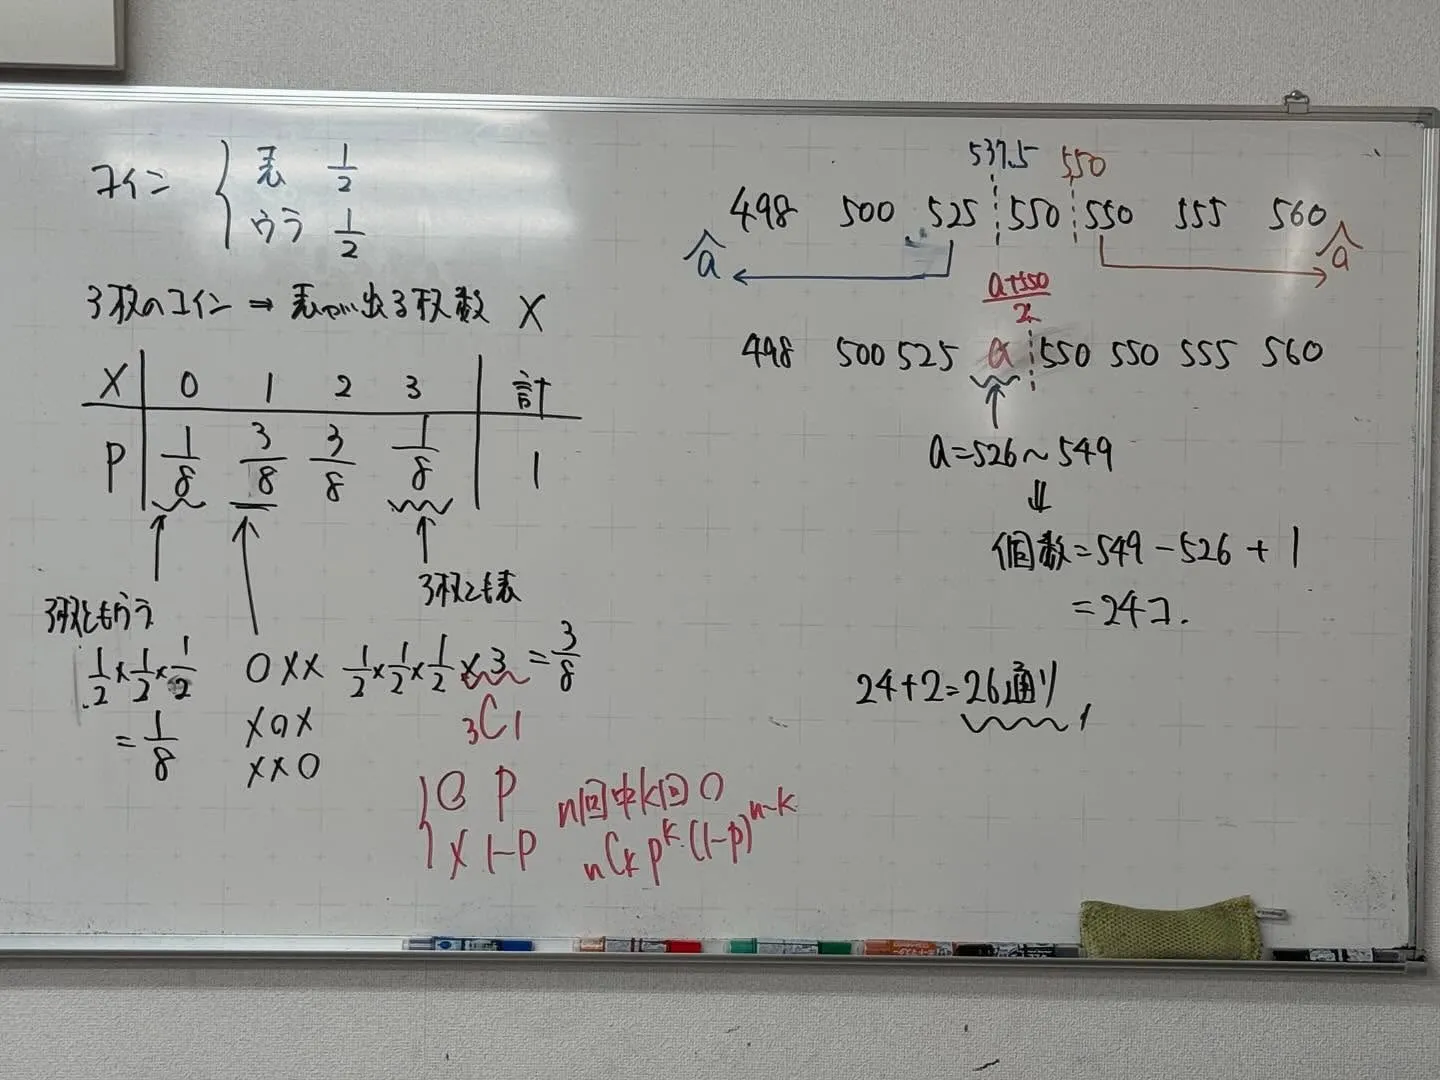 コイン 表 1/2
ウラ 1/2
3枚のコイン → 表が出る枚数 X
X 0 1 2 3 計
P 1/8 3/8 3/8 1/8 1
3枚ともウラ
3枚とも表
1/2×1/2×1/2
=1/8
○×× 1/2×1/2×1/2×3=3/8
×○×
××○
₃C₁
○ p
× 1-p
n回中k回○
nCk p^k (1-p)^n-k
537.5 550
498 500 525 550 550 555 560
a a
a+550/2
498 500 525 a 550 550 555 560
a=526~549
⇓
個数=549-526+1
=24コ.
24+2=26通り